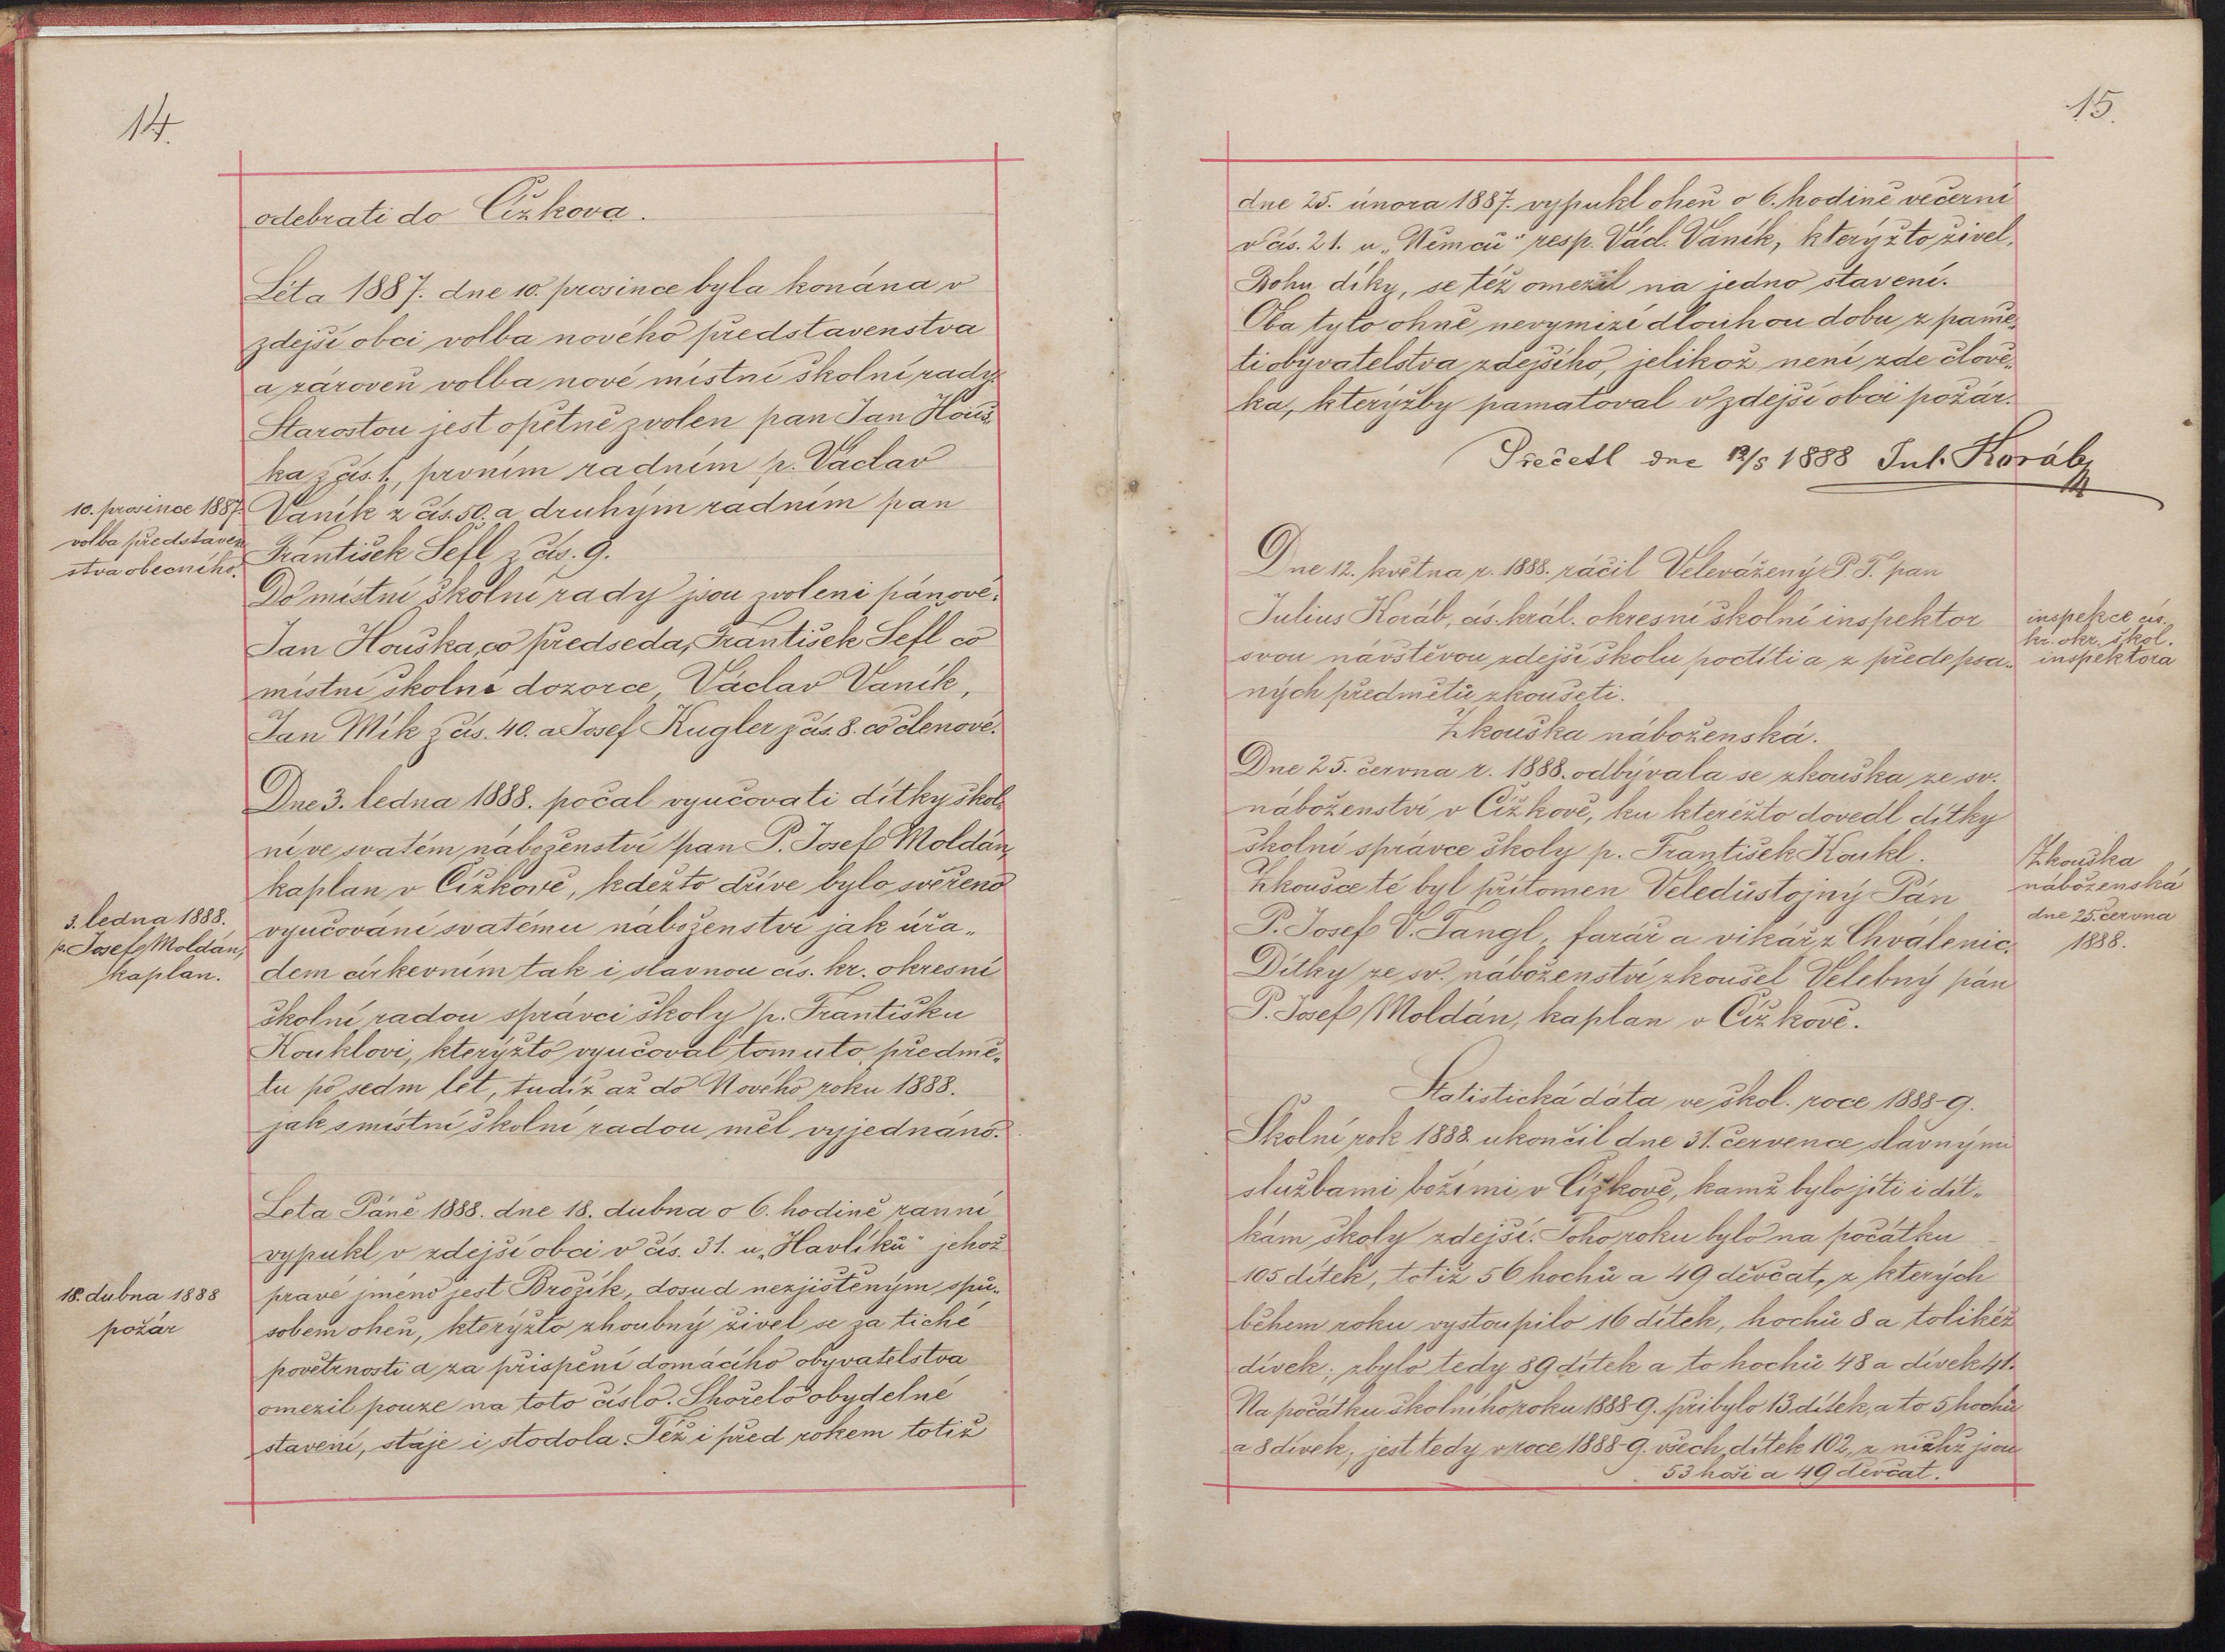 14.
odebrati do Čížkova.
Léta 1887. dne 10. prosince byla konána v
zdejší obci volba nového představenstva
a zároveň volba nové místní školní rady.
Starostou jest opětně zvolen pan Jan Houš„
ka z čís. 1., prvním radním p. Václav
10. prosince 1887.
volba představen
stva obecního.
Vaník z čís. 50. a druhým radním pan
František Šefl z čís. 9.
Do místní školní rady jsou zvoleni pánové:
Jan Houška, co předseda, František Šefl co
místní školní dozorce, Václav Vaník,
Jan Mík z čís. 40. a Josef Kugler z čís. 8. co členové.
Dne 3. ledna 1888. počal vyučovati dítky škol„
ní ve svatém náboženství pan P. Josef Moldán,
kaplan v Čížkově, kdežto dříve bylo svěřeno
3. ledna 1888.
p. Josef Moldán,
kaplan.
vyučování svatému náboženství jak úřa„
dem církevním tak i slavnou cís. kr. okresní
školní radou správci školy p. Františku
Kouklovi, kterýžto vyučoval tomuto předmě„
tu po sedm let, tudíž až do Nového roku 1888.
jak s místní školní radou měl vyjednáno.
Leta Páně 1888. dne 18. dubna o 6. hodině ranní
vypukl v zdejší obci v čís. 31. u „Havlíků" jehož
18. dubna 1888
požár
pravé jméno jest Brožík, dosud nezjištěným spů„
sobem oheň, kterýžto zhoubný živel se za tiché
povětrnosti a za přispění domácího obyvatelstva
omezil pouze na toto číslo. Shořelo obydelné
stavení, stáje i stodola. Též i před rokem totiž
15.
dne 25. února 1887. vypukl oheň o 6. hodině večerní
v čís. 21. u „Němců" resp. Václ. Vaník, kterýžto živel,
Bohu díky, se též omezil na jedno stavení.
Oba tyto ohně nevymizí dlouhou dobu z pamě„
ti obyvatelstva zdejšího, jelikož není zde člově„
ka, kterýžby pamatoval v zdejší obci požár.
Přečetl dne 12/5 1888 Jul. Koráb
Dne 12. května r. 1888. ráčil Velevážený P. T. pan
Julius Koráb, cís. král. okresní školní inspektor
svou návštěvou zdejší školu poctíti a z předepsa„
ných předmětů zkoušeti.
inspekce cís.
kr. okr. škol.
inspektora
Zkouška náboženská.
Dne 25. června r. 1888. odbývala se zkouška ze sv.
náboženství v Čížkově, ku kteréžto dovedl dítky
školní správce školy p. František Koukl.
Zkoušce té byl přítomen Veledůstojný Pán
P. Josef V. Tangl, farář a vikář z Chválenic.
Dítky ze sv. náboženství zkoušel Velebný pán
P. Josef Moldán, kaplan v Čížkově.
Zkouška
náboženská
dne 25. června
1888.
Statistická dáta ve škol. roce 1888-9.
Školní rok 1888. ukončil dne 31. července slavnými
službami božími v Čížkově, kamž bylo jíti i dít„
kám školy zdejší. Toho roku bylo na počátku
105 dítek, totiž 56 hochů a 49 děvčat, z kterých
během roku vystoupilo 16 dítek, hochů 8 a tolikéž
dívek; zbylo tedy 89 dítek a to hochů 48 a dívek 41.
Na počátku školního roku 1888-9. přibylo 13. dítek, a to 5 hochů
a 8 dívek; jest tedy v roce 1888-9. všech dítek 102, z nichž jsou
53 hoši a 49 děvčat.